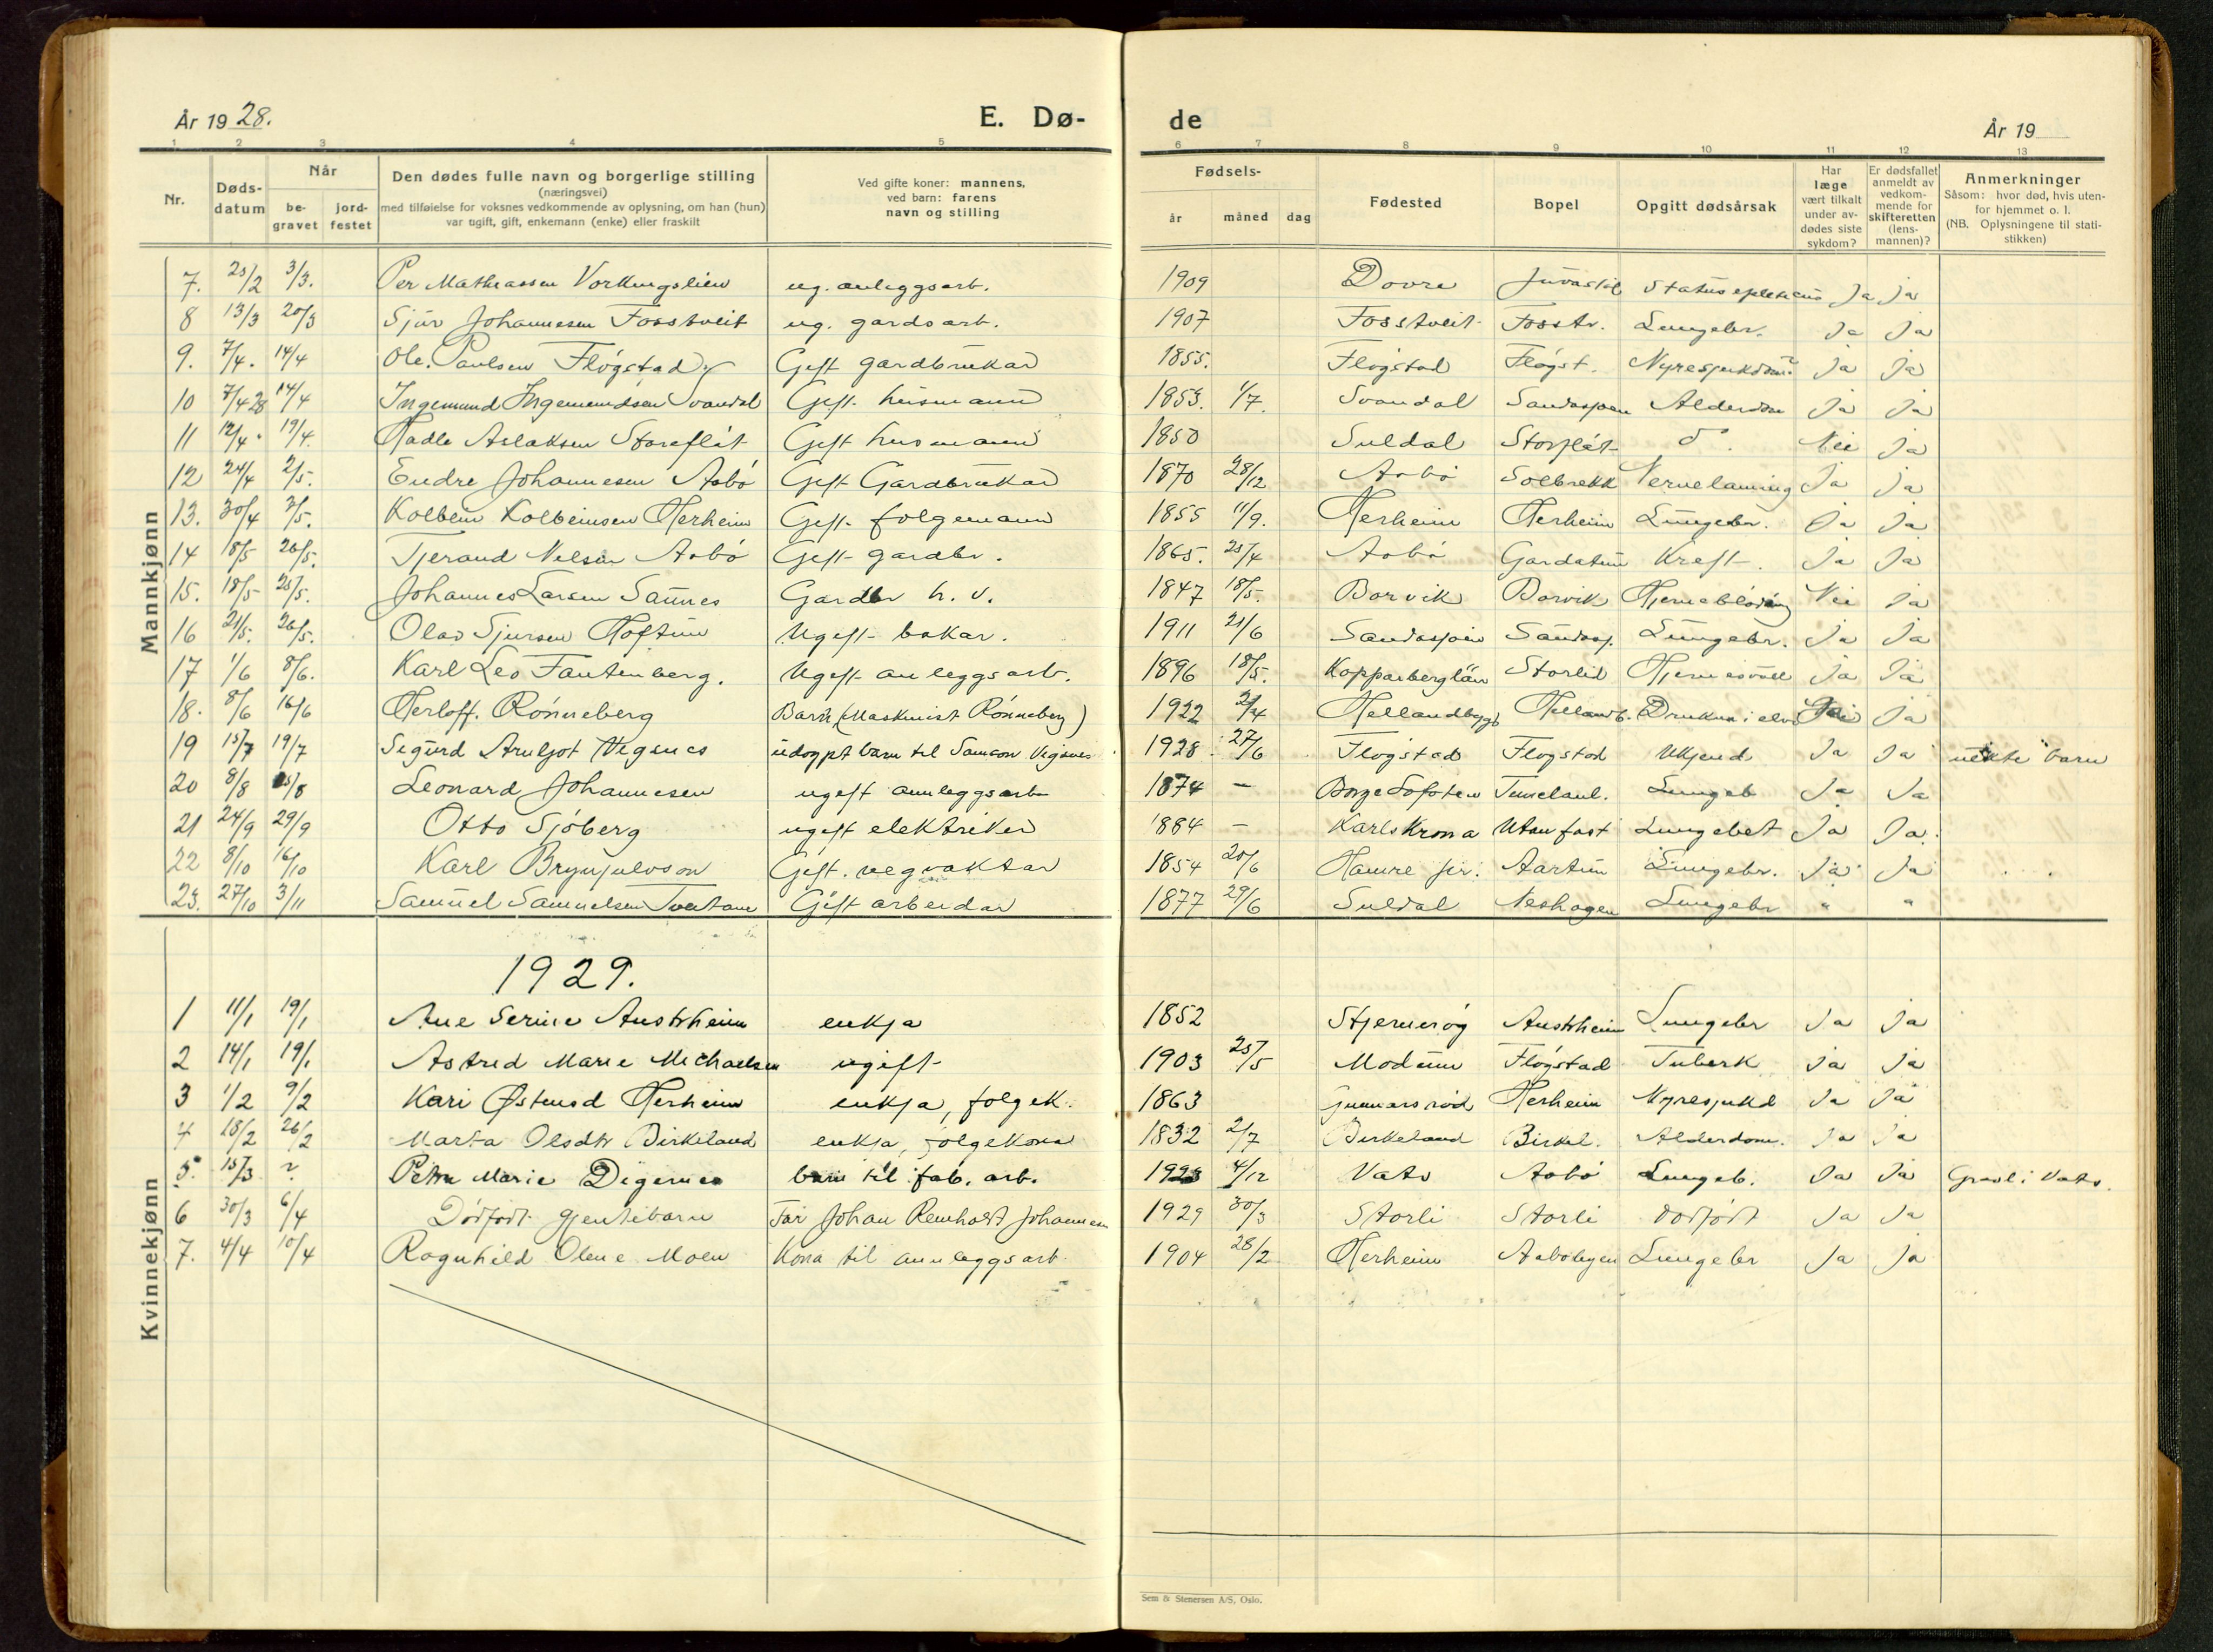 År 1928. E. Dø-
de År 19
1 2 3 4 5 6 7 8 9 10 11 12 13
Nr. Døds-datum Når be-gravet jord-festet Den dødes fulle navn og borgerlige stilling (næringsvei) med tilføielse for voksnes vedkommende av oplysning, om han (hun) var ugift, gift, enkemann (enke) eller fraskilt Ved gifte koner: mannens, ved barn: farens navn og stilling Fødsels- år måned dag Fødested Bopel Opgitt dødsårsak Har læge vært tilkalt under av-dødes siste sykdom? Er dødsfallet anmeldt av vedkom-mende for skifteretten (lens-mannen)? Anmerkninger Såsom: hvor død, hvis uten-for hjemmet o. l. (NB. Oplysningene til stati-stikken)
Mannkjønn
7. 25/2 3/3. Per Mathiassen Vorkingslien ug. anleggsarb. 1909 Dovre Juvaslid Status epilepticus Ja Ja
8 13/3 20/3 Sjur Johannesen Fosstveit ug. gardsarb. 1907 Fosstveit Fosstv. Lungebr. Ja Ja
9. 7/4. 14/4 Ole Paulsen Fløgstad Gift gardbrukar 1855. Fløgstad Fløgst. Nyresjukdom? Ja Ja
10 7/4 28 14/4 Ingemund Ingemundsen Svandal Gift husmann 1853. 1/7. Svandal Sandasjøen Alderdom Ja Ja
11 12/4. 19/4. Hadle Aslaksen Storeflåt Gift husmann 1850 Suldal Storflåt d. Nei Ja
12 24/4 2/5. Endre Johannesen Aabø Gift Gardbrukar 1870 28/12 Aabø Solbrekk Nervelaming Ja Ja
13. 30/4 3/5. Kolbein Kolbeinsen Herheim Gift folgemann 1855 11/9. Herheim Herheim Lungebr. Ja Ja
14 18/5 26/5. Tjerand Nelson Aabø Gift gardbr. 1865. 25/4 Aabø Gardatun Kreft. Ja Ja
15. 18/5 25/5. Johannes Larsen Sannes Gardbr h. v. 1847 18/5. Barvik Barvik Hjerneblødning Nei Ja
16 21/5. 26/5. Olav Sjursen Hoftun Ugift bakar. 1911 21/6 Sandasjøen Sandasj. Lungebr. Ja Ja
17 1/6 8/6. Karl Leo Fantenberg. Ugift anleggsarb. 1896 18/5. Kopparberglän Storlid Hjernesvull Ja Ja
18. 8/6 16/6 Herloff. Rønneberg Barn (Maskinist Rønneberg) 1922 2/4 Hellandbygd Hellandb. Druknin i elv Ja
19 15/7 19/7 Sigurd Arnljot Vegsnes udøypt barn til Samson Vignes 1928. 27/6 Flogstad Flogstad Ukjend Ja Ja uekte barn
20 8/8 15/8 Leonard Johannesen ugift annleggsarb 1874 — Borge Lofoten Lungeb Ja Ja
21 24/9 29/9 Otto Sjøberg ugift elektriker 1884 — Karlskrona Utan fast Lungebet Ja Ja.
22 8/10 16/10 Karl Brynjulvson Gift. vegvaktar 1854 20/6 Hamre Aartun Lungebr. Ja Ja
23. 27/10 3/11 Samuel Samuelsen Tveitane Gift arbeidar 1877 29/6 Suldal Neshagen Lungebr " "
1929.
Kvinnekjønn
1 11/1 19/1 Ane Serine Austrheim enkja 1852 Stjernerøy Austrheim Lungebr Ja Ja
2 14/1 19/1 Astrid Marie Michaelsen ugift 1903 25/5 Modum Fløgstad Tuberk Ja Ja
3 1/2 9/2 Kari Østensd Herheim enkja, folgek. 1863 Gunnarsrød Herheim Nyresjukd Ja Ja
4 18/2 26/2 Marta Olsdtr Birkeland enkja, folgekona 1832 2/7 Birkeland Birkel. Alderdom. Ja Ja
5. 15/3 ? Petra Marie Digernes barn til fab. arb. 1923 4/12 Vats Aabø Lungeb. Ja Ja Gravl. i Vats.
6 30/3 6/4 Dødfødt gjentebarn Far Johan Reinholdt Johannesen 1929 30/3 Storli Storli dødfødt Ja Ja
7. 4/4 10/4 Ragnhild Olene Moen Kona til annleggsarb. 1904 28/2 Herheim Aabøbyen Lungebr Ja Ja
Sem & Stenersen A/S, Oslo.